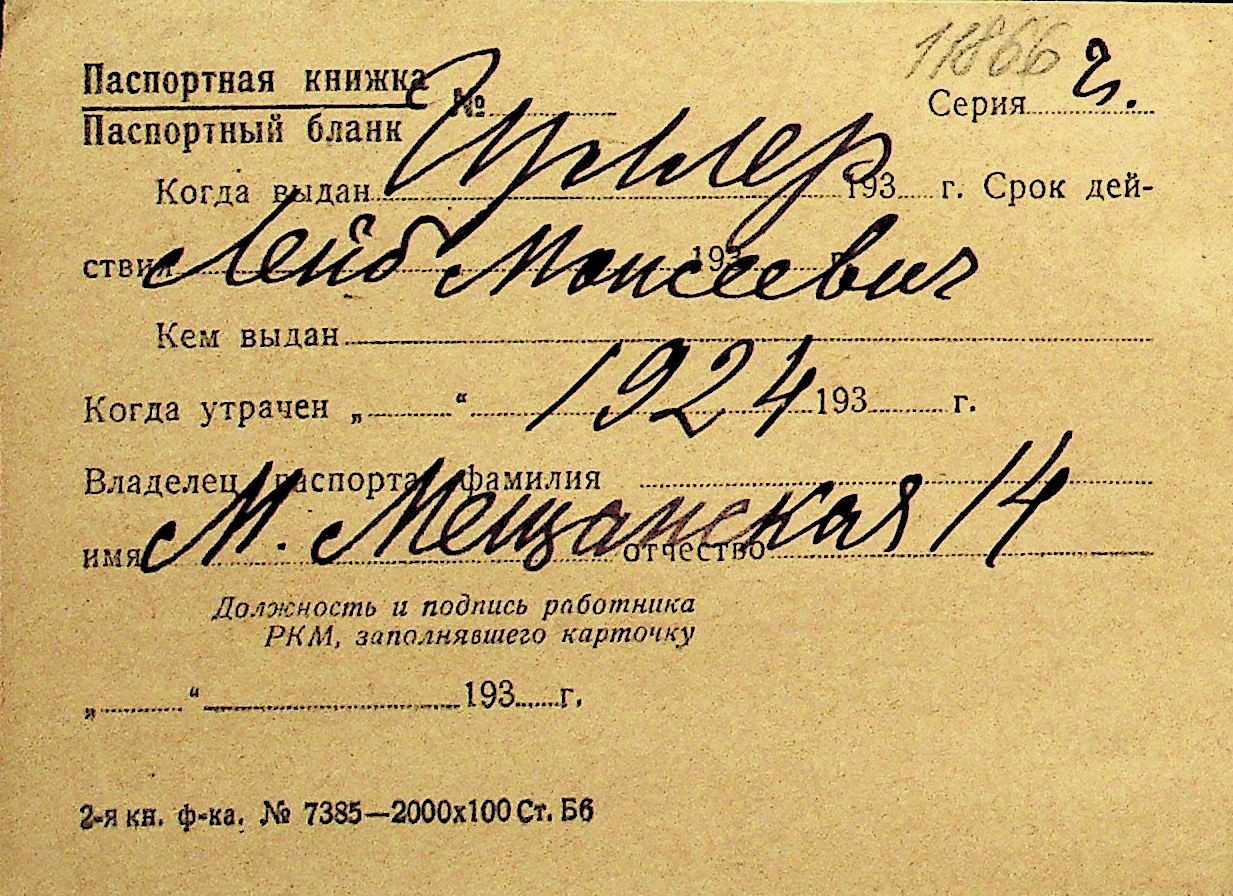 11866
Паспортная книжка № Серия г.
Паспортный бланк
Когда выдан 193 г. Срок дей-
ствия 193 г.
Лейб Моисеевич
Кем выдан
1924
Когда утрачен „ “ 193 г.
Владелец паспорта фамилия
М. Мещанская 14
имя отчество
Должность и подпись работника
РКМ, заполнявшего карточку
„ “ 193 г.
2-я кн. ф-ка. № 7385—2000х100 Ст. Б6